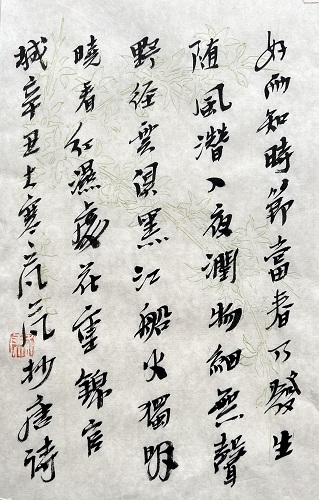 好雨知時節當春乃發生
随風潛入夜潤物細無聲
野径雲俱黑江船火獨明
曉看紅濕處花重錦官
城辛丑大寒 抄唐詩